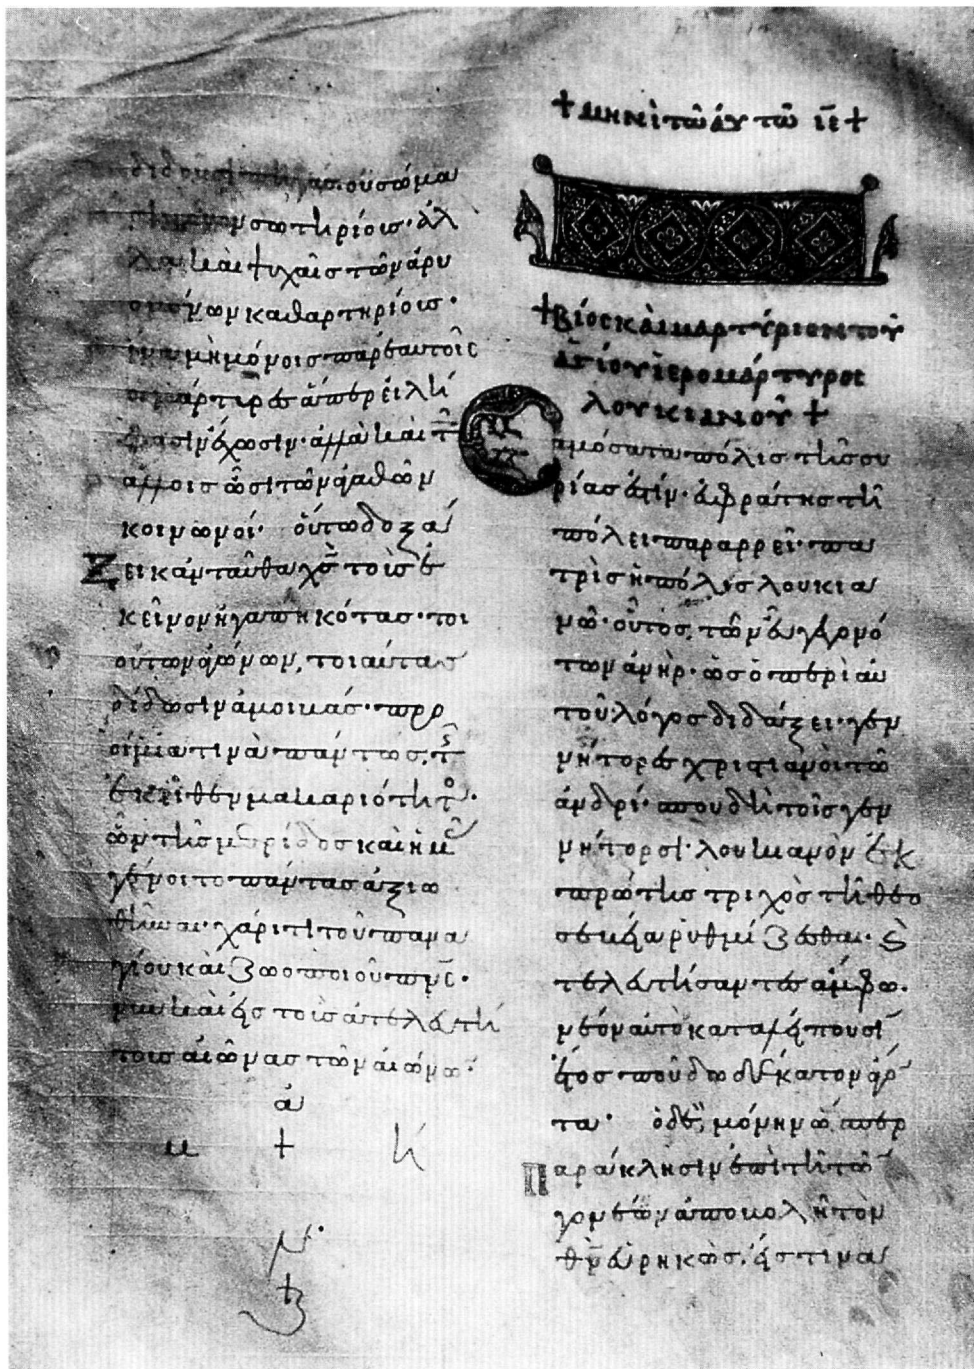 πηγάς. οὐ σώμα
σωτηρίοις· ἀλ
λὰ καὶ ψυχαῖς τῶν ἀρυ
ομένων καθαρτηρίοις·
ἵνα μὴ μόνοις παρ' ἑαυτοῖς
οἱ μάρτυρες ἅπερ εἰλή
φασιν ἔχωσιν· ἀλλὰ καὶ
ἄλλοις ὦσι τῶν ἀγαθῶν
κοινωνοί· οὕτω δοξά
ζει κἀνταῦθα χς̄ τοὺς ἐ
κεῖνον ἠγαπηκότας· τοι
ούτων ἀγώνων, τοιαύτας
δίδωσιν ἀμοιβάς· προ
οίμιά τινα πάντως, τῆς
ἐκεῖθεν μακαριότητος·
ὧν τῆς μερίδος καὶ ἡμᾶς
γένοιτο πάντας ἀξιω
θῆναι· χάριτι τοῦ πανα
γίου καὶ ζωοποιοῦ πν̄ς·
νῦν καὶ εἰς τοὺς ἀτελευτή
τους αἰῶνας τῶν αἰώνων·
+ μηνὶ τῶ αὐτῶ ιε̄ +
+ βίος καὶ μαρτύριον τοῦ
ἁγίου ἱερομάρτυρος
λουκιανοῦ +
Σαμόσατα πόλις τῆς συ
ρίας ἐστίν· εὐφράτης τῆ
πόλει παραρρεῖ· πα
τρὶς ἡ πόλις λουκια
νῶ· οὗτος, τῶν εὖ γεγονό
των ἀνὴρ· ὡς ὁ περὶ αὐ
τοῦ λόγος διδάξει· γεν
νήτορες χριστιανοὶ τῶ
ἀνδρί· σπουδὴ τοῖς γεν
νήτορσι· λουκιανὸν ἐκ
πρώτης τριχὸς τῆ θεο
σεβεία ρυθμίζεσθαι· καὶ
τελευτήσαντες ἄμφω.
νέον αὐτὸ καταλείπουσι
ἔτος που δωδέκατον ἄρ
τι· ὁ δὲ, μόνην ὥσπερ
παράκλησιν ἐπὶ τῆ τῶν
γονέων ἀποβολῆ τὸν
θν̄ εὑρηκὼς, εἴς τινα